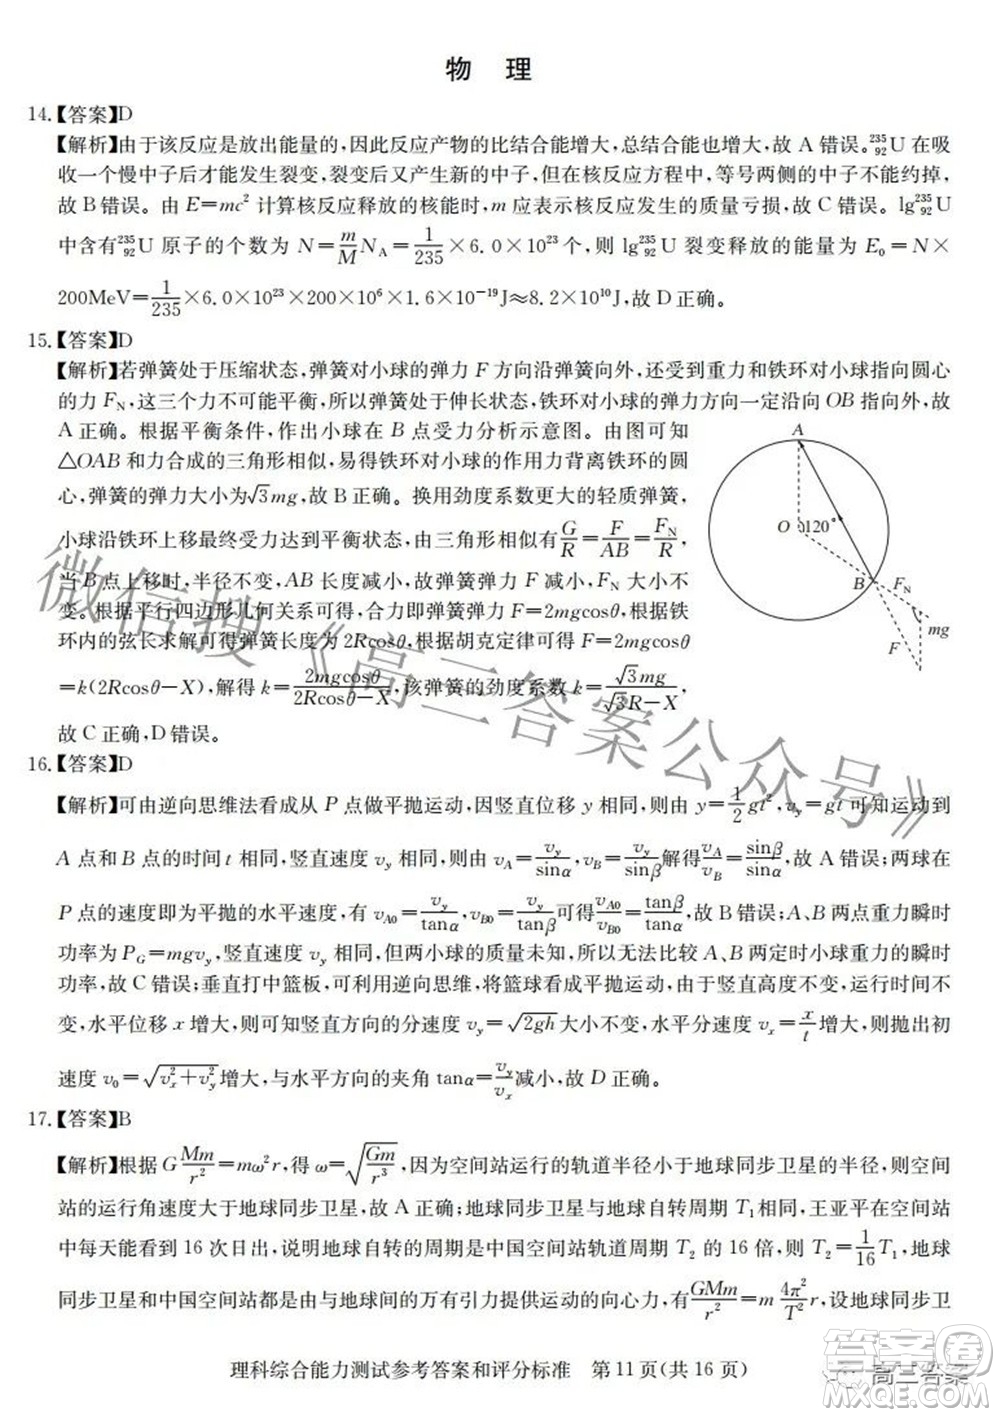 物 理
14.【答案】D
【解析】由于该反应是放出能量的,因此反应产物的比结合能增大,总结合能也增大,故 A 错误。²³⁵₉₂U 在吸
收一个慢中子后才能发生裂变,裂变后又产生新的中子,但在核反应方程中,等号两侧的中子不能约掉,
故 B 错误。由 E=mc² 计算核反应释放的核能时,m 应表示核反应发生的质量亏损,故 C 错误。1g²³⁵₉₂U
中含有²³⁵₉₂U 原子的个数为 N=m/M N_A=1/235×6.0×10²³个,则 1g²³⁵₉₂U 裂变释放的能量为 E₀=N×
200MeV=1/235×6.0×10²³×200×10⁶×1.6×10⁻¹⁹J≈8.2×10¹⁰J,故 D 正确。
15.【答案】D
【解析】若弹簧处于压缩状态,弹簧对小球的弹力 F 方向沿弹簧向外,还受到重力和铁环对小球指向圆心
的力 F_N,这三个力不可能平衡,所以弹簧处于伸长状态,铁环对小球的弹力方向一定沿向 OB 指向外,故
A 正确。根据平衡条件,作出小球在 B 点受力分析示意图。由图可知
△OAB 和力合成的三角形相似,易得铁环对小球的作用力背离铁环的圆
心,弹簧的弹力大小为√3mg,故 B 正确。换用劲度系数更大的轻质弹簧,
小球沿铁环上移最终受力达到平衡状态,由三角形相似有 G/R=F/AB=F_N/R,
当 B 点上移时,半径不变,AB 长度减小,故弹簧弹力 F 减小,F_N 大小不
变。根据平行四边形几何关系可得,合力即弹簧弹力 F=2mgcosθ,根据铁
环内的弦长求解可得弹簧长度为 2Rcosθ,根据胡克定律可得 F=2mgcosθ
=k(2Rcosθ-X),解得 k=2mgcosθ/(2Rcosθ-X),该弹簧的劲度系数 k=√3mg/(√3R-X),
故 C 正确,D 错误。
A
O
120°
B
F_N
mg
F
16.【答案】D
【解析】可由逆向思维法看成从 P 点做平抛运动,因竖直位移 y 相同,则由 y=1/2 gt²,v_y=gt 可知运动到
A 点和 B 点的时间 t 相同,竖直速度 v_y 相同,则由 v_A=v_y/sinα,v_B=v_y/sinβ 解得 v_A/v_B=sinβ/sinα,故 A 错误;两球在
P 点的速度即为平抛的水平速度,有 v_A0=v_y/tanα,v_B0=v_y/tanβ 可得 v_A0/v_B0=tanβ/tanα,故 B 错误;A、B 两点重力瞬时
功率为 P_G=mgv_y,竖直速度 v_y 相同,但两小球的质量未知,所以无法比较 A、B 两定时小球重力的瞬时
功率,故 C 错误;垂直打中篮板,可利用逆向思维,将篮球看成平抛运动,由于竖直高度不变,运行时间不
变,水平位移 x 增大,可知竖直方向的分速度 v_y=√(2gh)大小不变,水平分速度 v_x=x/t 增大,则抛出初
速度 v₀=√(v_x²+v_y²)增大,与水平方向的夹角 tanα=v_y/v_x 减小,故 D 正确。
17.【答案】B
【解析】根据 G Mm/r²=mω²r,得 ω=√(Gm/r³),因为空间站运行的轨道半径小于地球同步卫星的半径,则空间
站的运行角速度大于地球同步卫星,故 A 正确;地球同步卫星与地球自转周期 T₁相同,王亚平在空间站
中每天能看到 16 次日出,说明地球自转的周期是中国空间站轨道周期 T₂ 的 16 倍,则 T₂=1/16 T₁,地球
同步卫星和中国空间站都是由与地球间的万有引力提供运动的向心力,有 GMm/r²=m 4π²/T² r,设地球同步卫
理科综合能力测试参考答案和评分标准 第 11 页(共 16 页)
微信搜《高三答案公众号》
高三答案
MXQE.COM